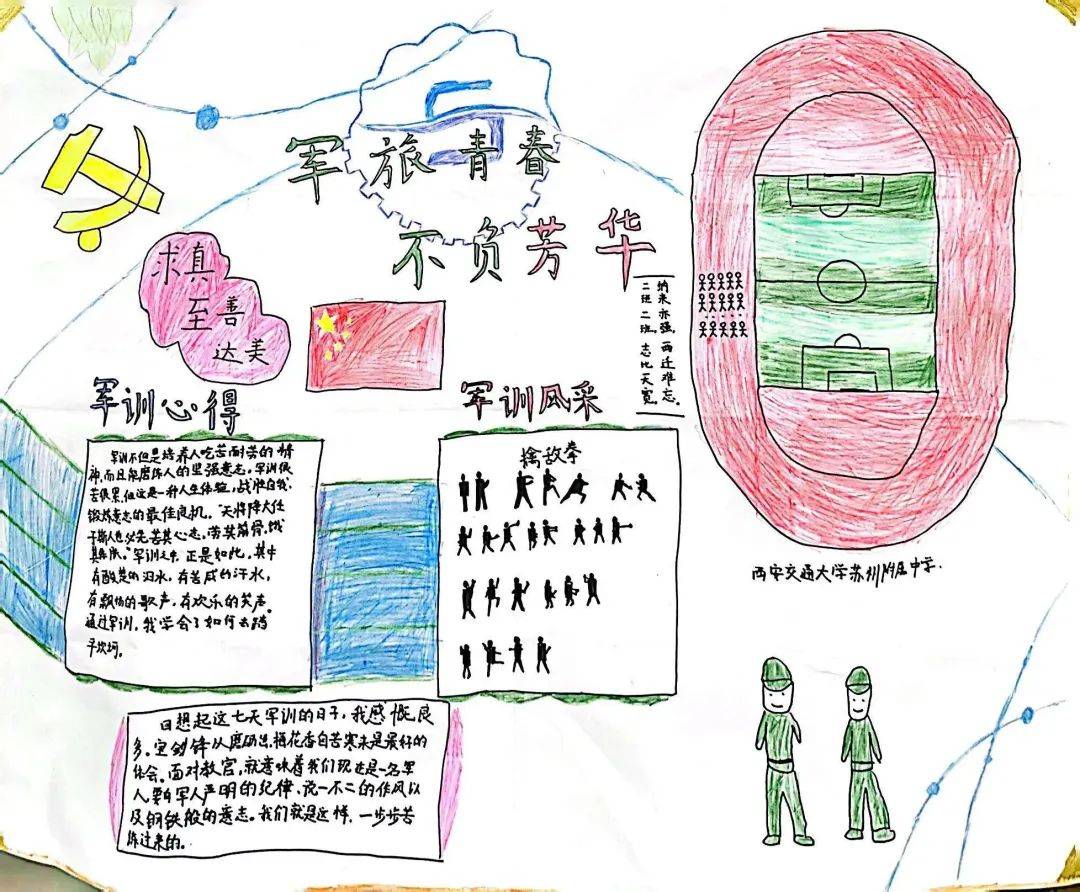 军旅青春
不负芳华
求真
至善
达美
纳米亦强，西迁难忘。
二班二班，志比天宽。
军训心得
军训不但是培养人吃苦耐劳的精
神，而且能磨练人的坚强意志。军训很
苦很累，但这是一种人生体验，战胜自我，
锻炼意志的最佳良机。"天将降大任
于斯人也必先苦其心志，劳其筋骨，饿
其体肤。"军训之中，正是如此。其中
有酸楚的泪水，有苦咸的汗水，
有飘扬的歌声，有欢乐的笑声。
通过军训，我学会了如何去踏
平坎坷。
军训风采
擒敌拳
西安交通大学苏州附属中学.
回想起这七天军训的日子，我感慨良
多。宝剑锋从磨砺出，梅花香自苦寒来是最好的
体会。面对教官，就意味着我们现在是一名军
人，要有军人严明的纪律、说一不二的作风以
及钢铁般的意志。我们就是这样，一步步苦
练过来的。